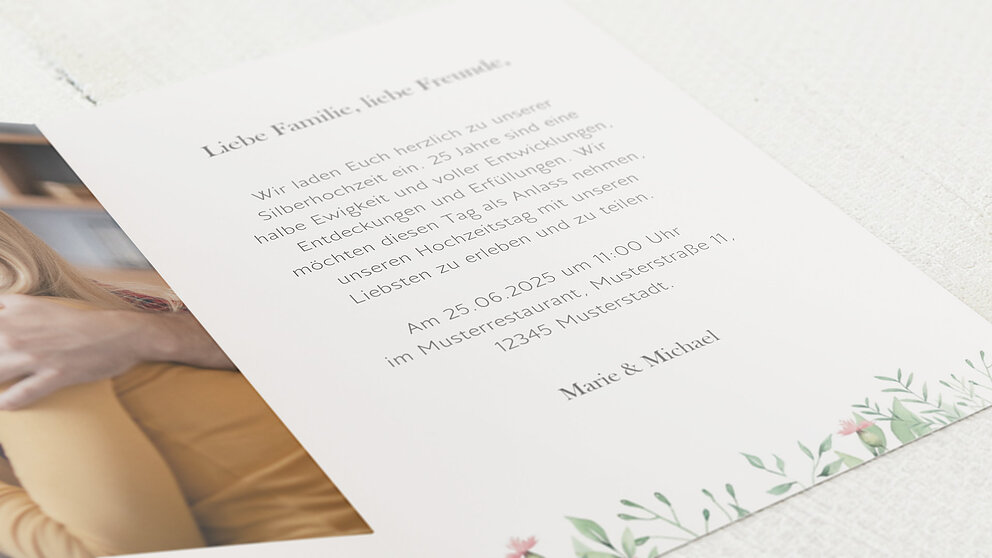 Liebe Familie, liebe Freunde,
Wir laden Euch herzlich zu unserer
Silberhochzeit ein. 25 Jahre sind eine
halbe Ewigkeit und voller Entwicklungen,
Entdeckungen und Erfüllungen. Wir
möchten diesen Tag als Anlass nehmen,
unseren Hochzeitstag mit unseren
Liebsten zu erleben und zu teilen.
Am 25.06.2025 um 11:00 Uhr
im Musterrestaurant, Musterstraße 11,
12345 Musterstadt.
Marie & Michael